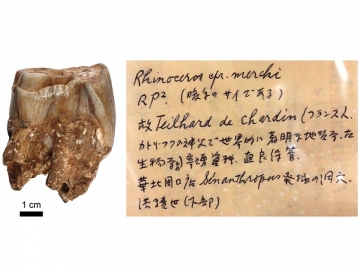 Rhinoceros cfr. merchi
RP². (噛歯のサイである)
故 Teilhard de Chardin (フランス人
カトリックの神父で世界的に著明な地質学、古
生物学者 寄贈資料 直良保管
華北周口店 Sinanthropus 発掘の洞穴
洪積世 (下部)
1 cm